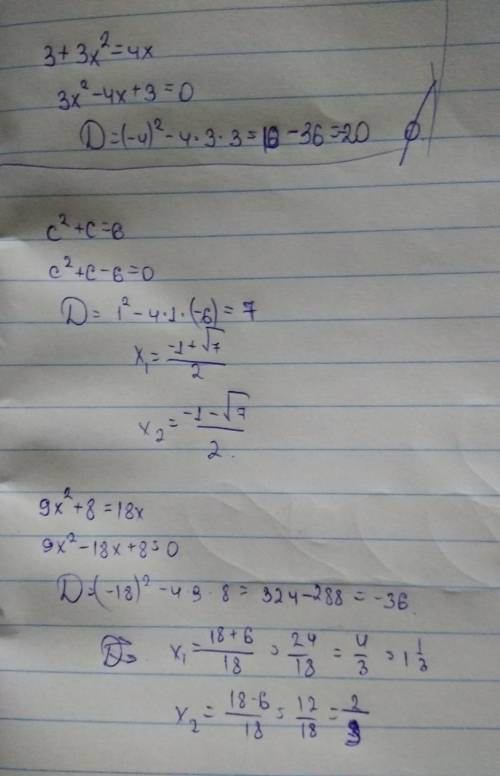 3 + 3x² = 4x
3x² - 4x + 3 = 0
D = (-4)² - 4 · 3 · 3 = 16 - 36 = -20 ∅
c² + c = 6
c² + c - 6 = 0
D = 1² - 4 · 1 · (-6) = 7
x₁ = (-1 + √7)/2
x₂ = (-1 - √7)/2.
9x² + 8 = 18x
9x² - 18x + 8 = 0
D = (-18)² - 4 · 9 · 8 = 324 - 288 = -36
x₁ = (18 + 6)/18 = 24/18 = 4/3 = 1 1/3
x₂ = (18 - 6)/18 = 12/18 = 2/3